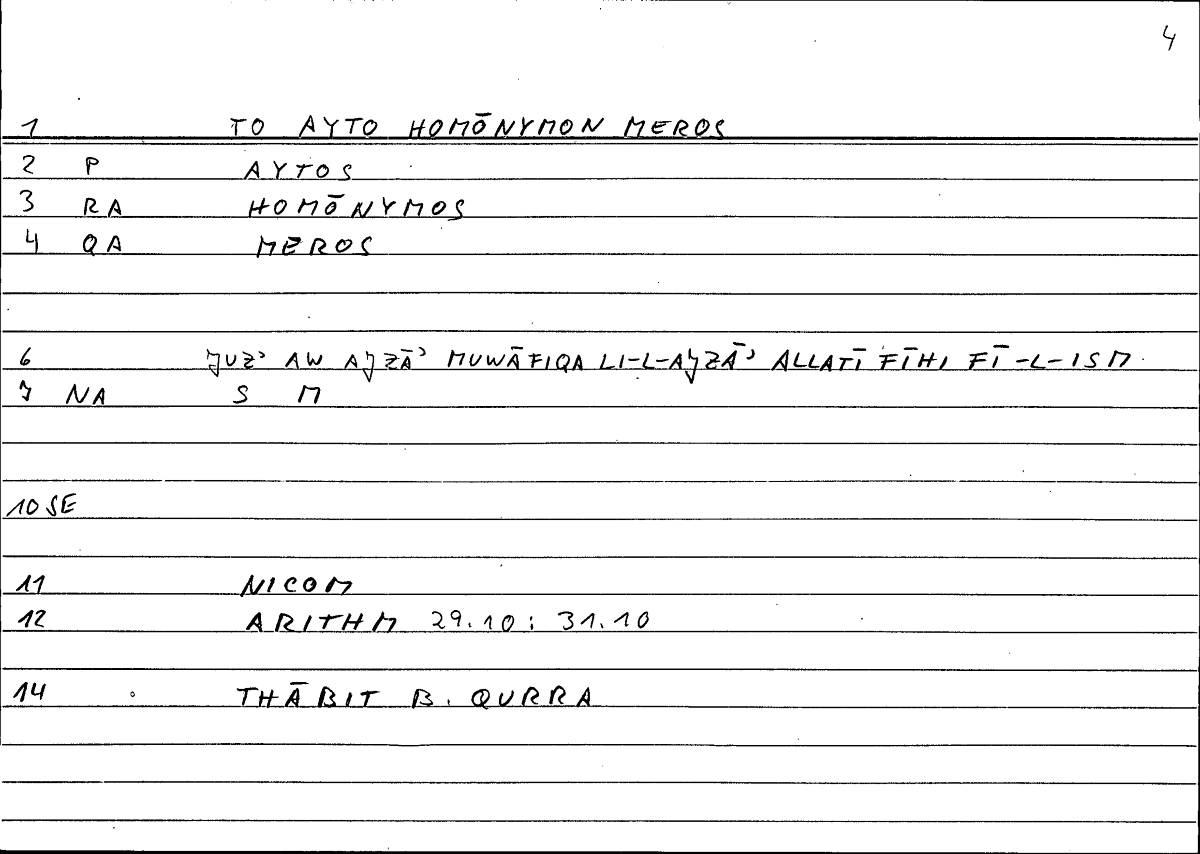 4
1 TO AYTO HOMŌNYMON MEROS
2 P AYTOS
3 RA HOMŌNYMOS
4 QA MEROS
6 JUZʾ AW AJZĀʾ MUWĀFIQA LI-L-AJZĀʾ ALLATĪ FĪHI FĪ-L-ISM
7 NA S M
10 SE
11 NICOM
12 ARITHM 29.10; 31.10
14 THĀBIT B. QURRA